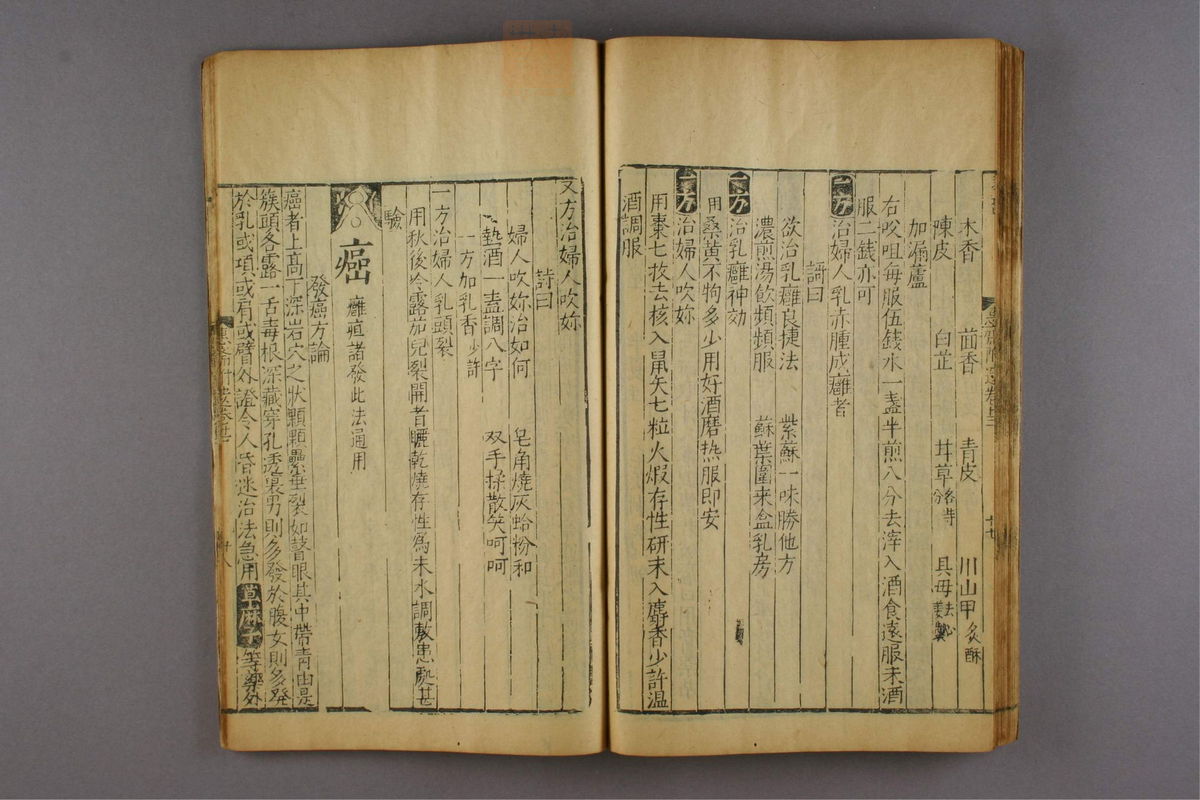 木香 茴香 青皮 川山甲炙酥
陳皮 白芷 甘草各等 貝母去心
加漏蘆
右㕮咀每服伍錢水一盞半煎八分去滓入酒食遠服末酒
服二錢亦可
一方治婦人乳赤腫成癰者
詩曰
欲治乳癰良捷法 紫蘇一味勝他方
濃煎湯飲頻頻服 蘇葉圍来盒乳房
一方治乳癰神効
用桑黃不狗多少用好酒磨热服即安
一方治婦人吹妳
用棗七枚去核入鼠矢七粒火煆存性研末入麝香少許温
酒調服
又方治婦人吹妳
詩曰
婦人吹妳治如何 皂角燒灰蛤粉和
熱酒一盞調八字 双手揉散笑呵呵
一方加乳香少許
一方治婦人乳頭裂
用秋後冷露茄兒裂開者曬乾燒存性爲末水調敷患處甚
驗
癌 癰疽諸發此法通用
發癌方論
癌者上高下深岩穴之狀顆顆壘垂裂如瞽眼其中帶青由是
簇頭各露一舌毒根深藏穿孔透裏男則多發於腹女則多發
於乳或項或肩或臂外證令人昏迷治法急用萆麻子等藥外
廿八